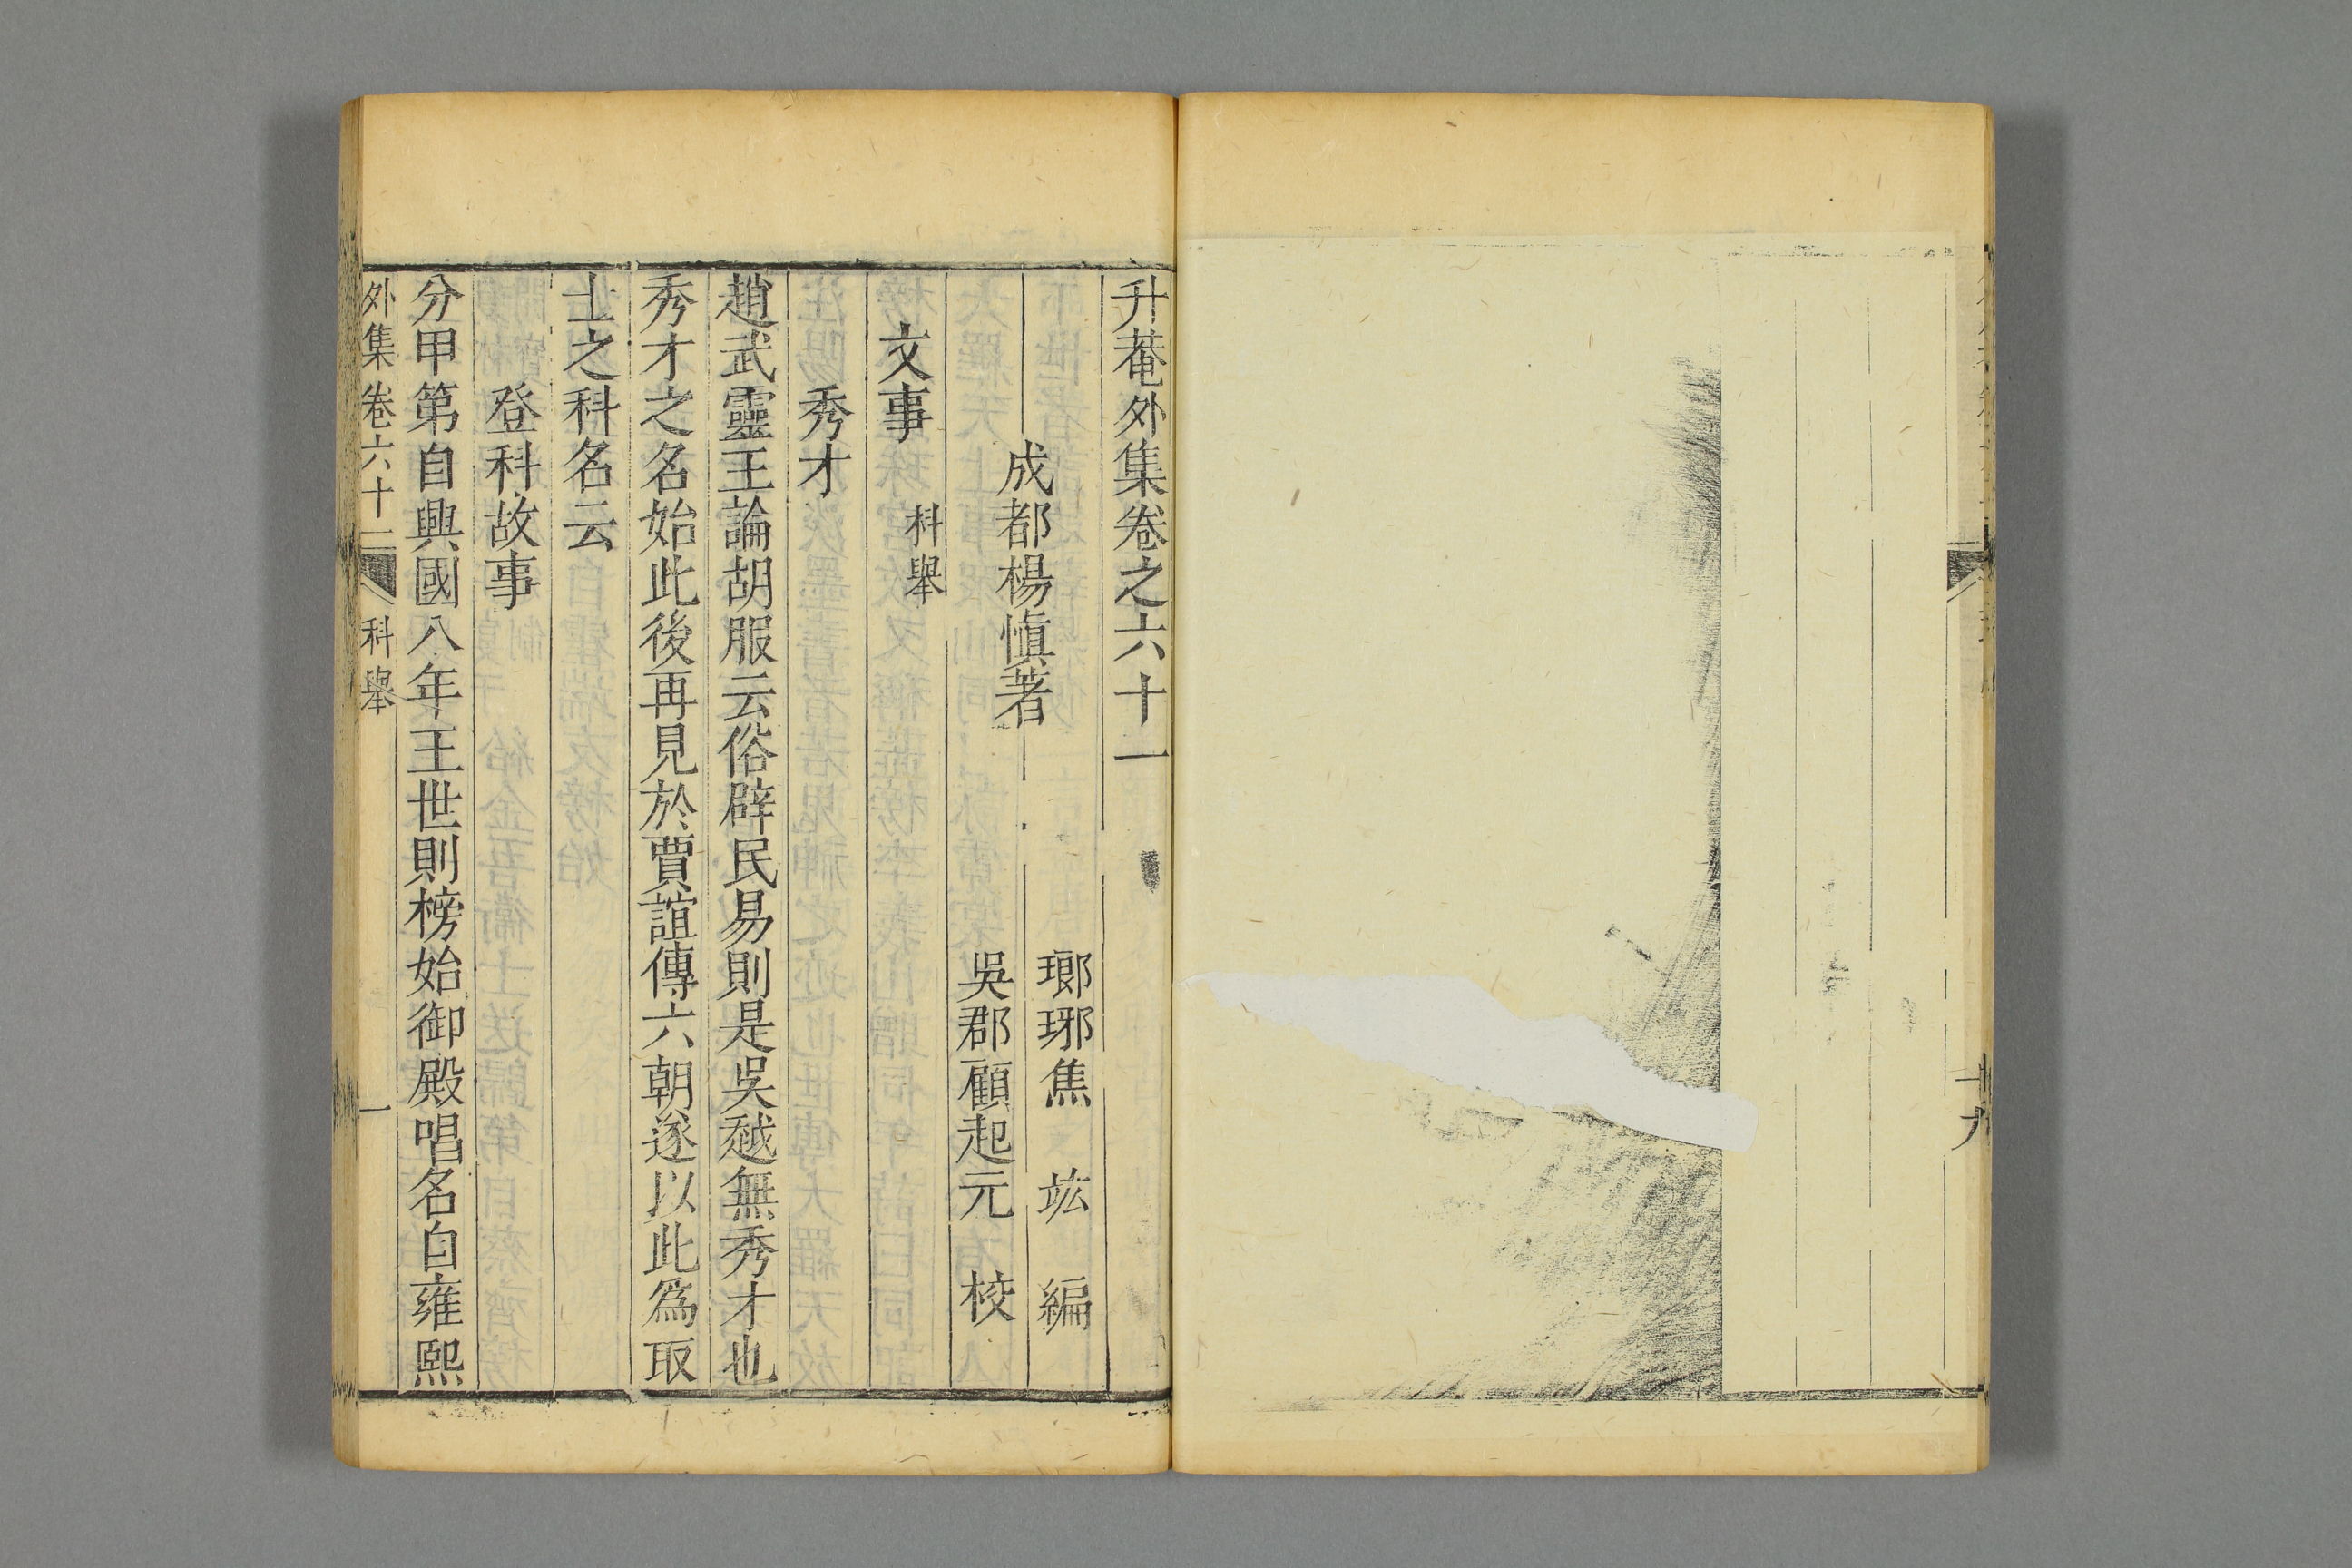 十九
升菴外集卷之六十一
成都楊慎著
瑯琊焦竑編
吳郡顧起元校
文事
科舉
秀才
趙武靈王論胡服云俗辟民易則是吳越無秀才也
秀才之名始此後再見於賈誼傳六朝遂以此爲取
士之科名云
登科故事
分甲第自興國八年王世則榜始御殿唱名自雍熙
外集卷六十一
科舉
一